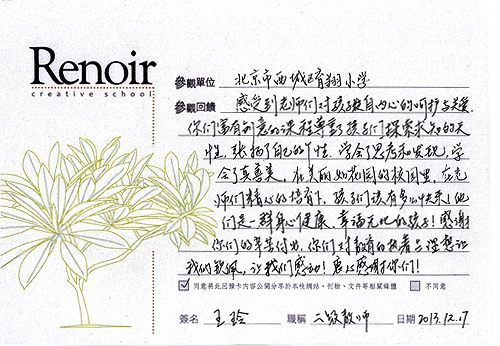 Renoir
creative school
參觀單位 北京市西城区育翔小学
參觀回饋 感受到老师们对孩子发自内心的呵护与关爱.
你们富有创意的课程尊重了孩子们探索求知的天
性,张扬了自己的个性.学会了思考和发现,学
会了真善美.在美丽如花园的校园里,在老
师们精心的培育下,孩子们该有多么快乐!他
们是一群身心健康、幸福无比的孩子!感谢
你们的辛苦付出,你们对教育的执着与理想让
我们敬佩,让我们感动!衷心感谢你们!
同意將此回饋卡內容公開分享於本校網站、刊物、文件等相關媒體 不同意
簽名 王玲 職稱 二级教师 日期 2013.12.17